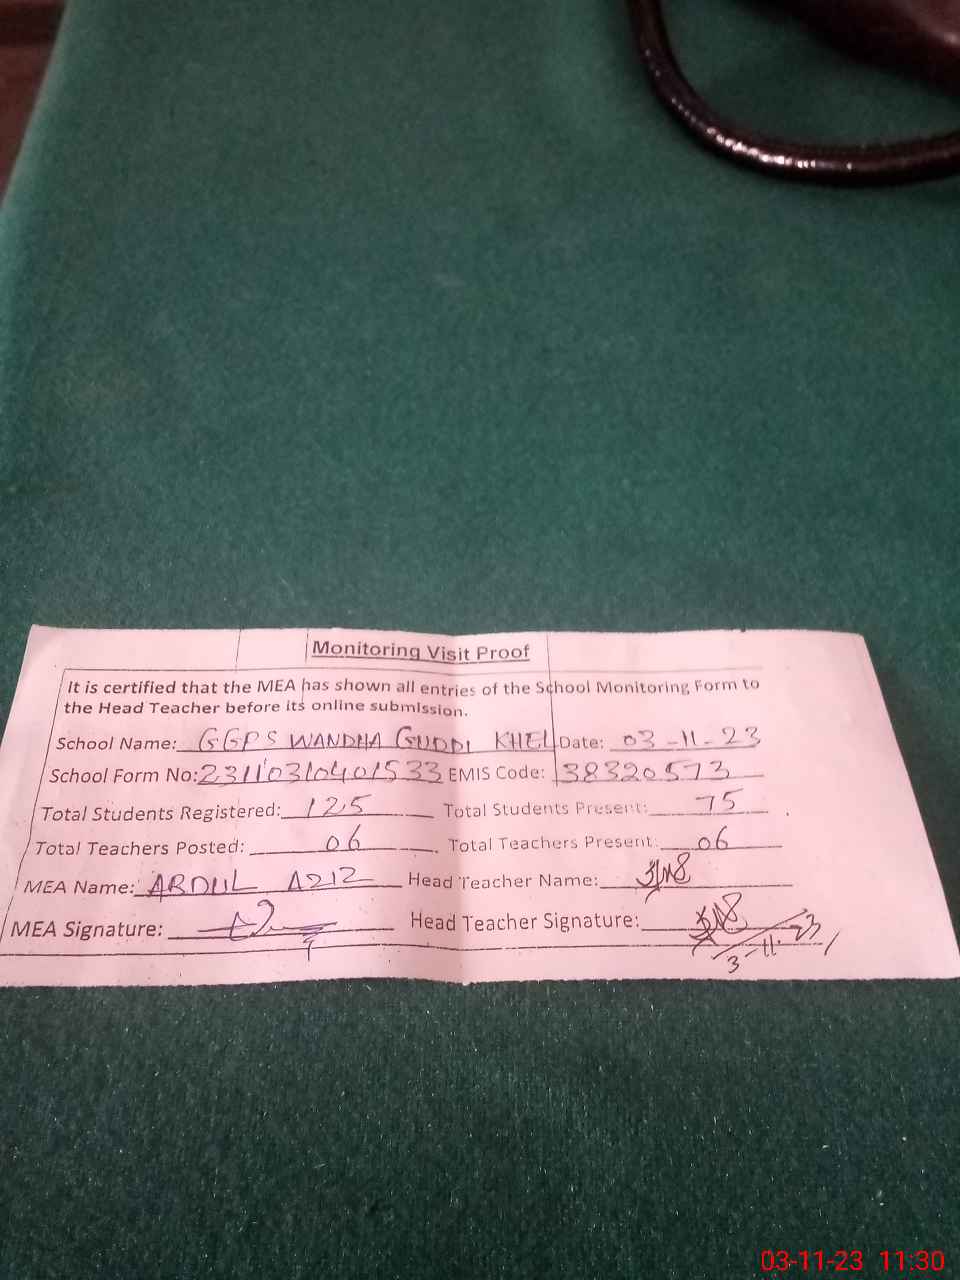 Monitoring Visit Proof
It is certified that the MEA has shown all entries of the School Monitoring Form to
the Head Teacher before its online submission.
School Name: GGPS WANDHA GUDDI KHEL Date: 03-11-23
School Form No: 23110310401533 EMIS Code: 38320573
Total Students Registered: 125 Total Students Present: 75
Total Teachers Posted: 06 Total Teachers Present: 06
MEA Name: ABDUL AZIZ Head Teacher Name:
MEA Signature: Head Teacher Signature:
3-11-23
03-11-23 11:30